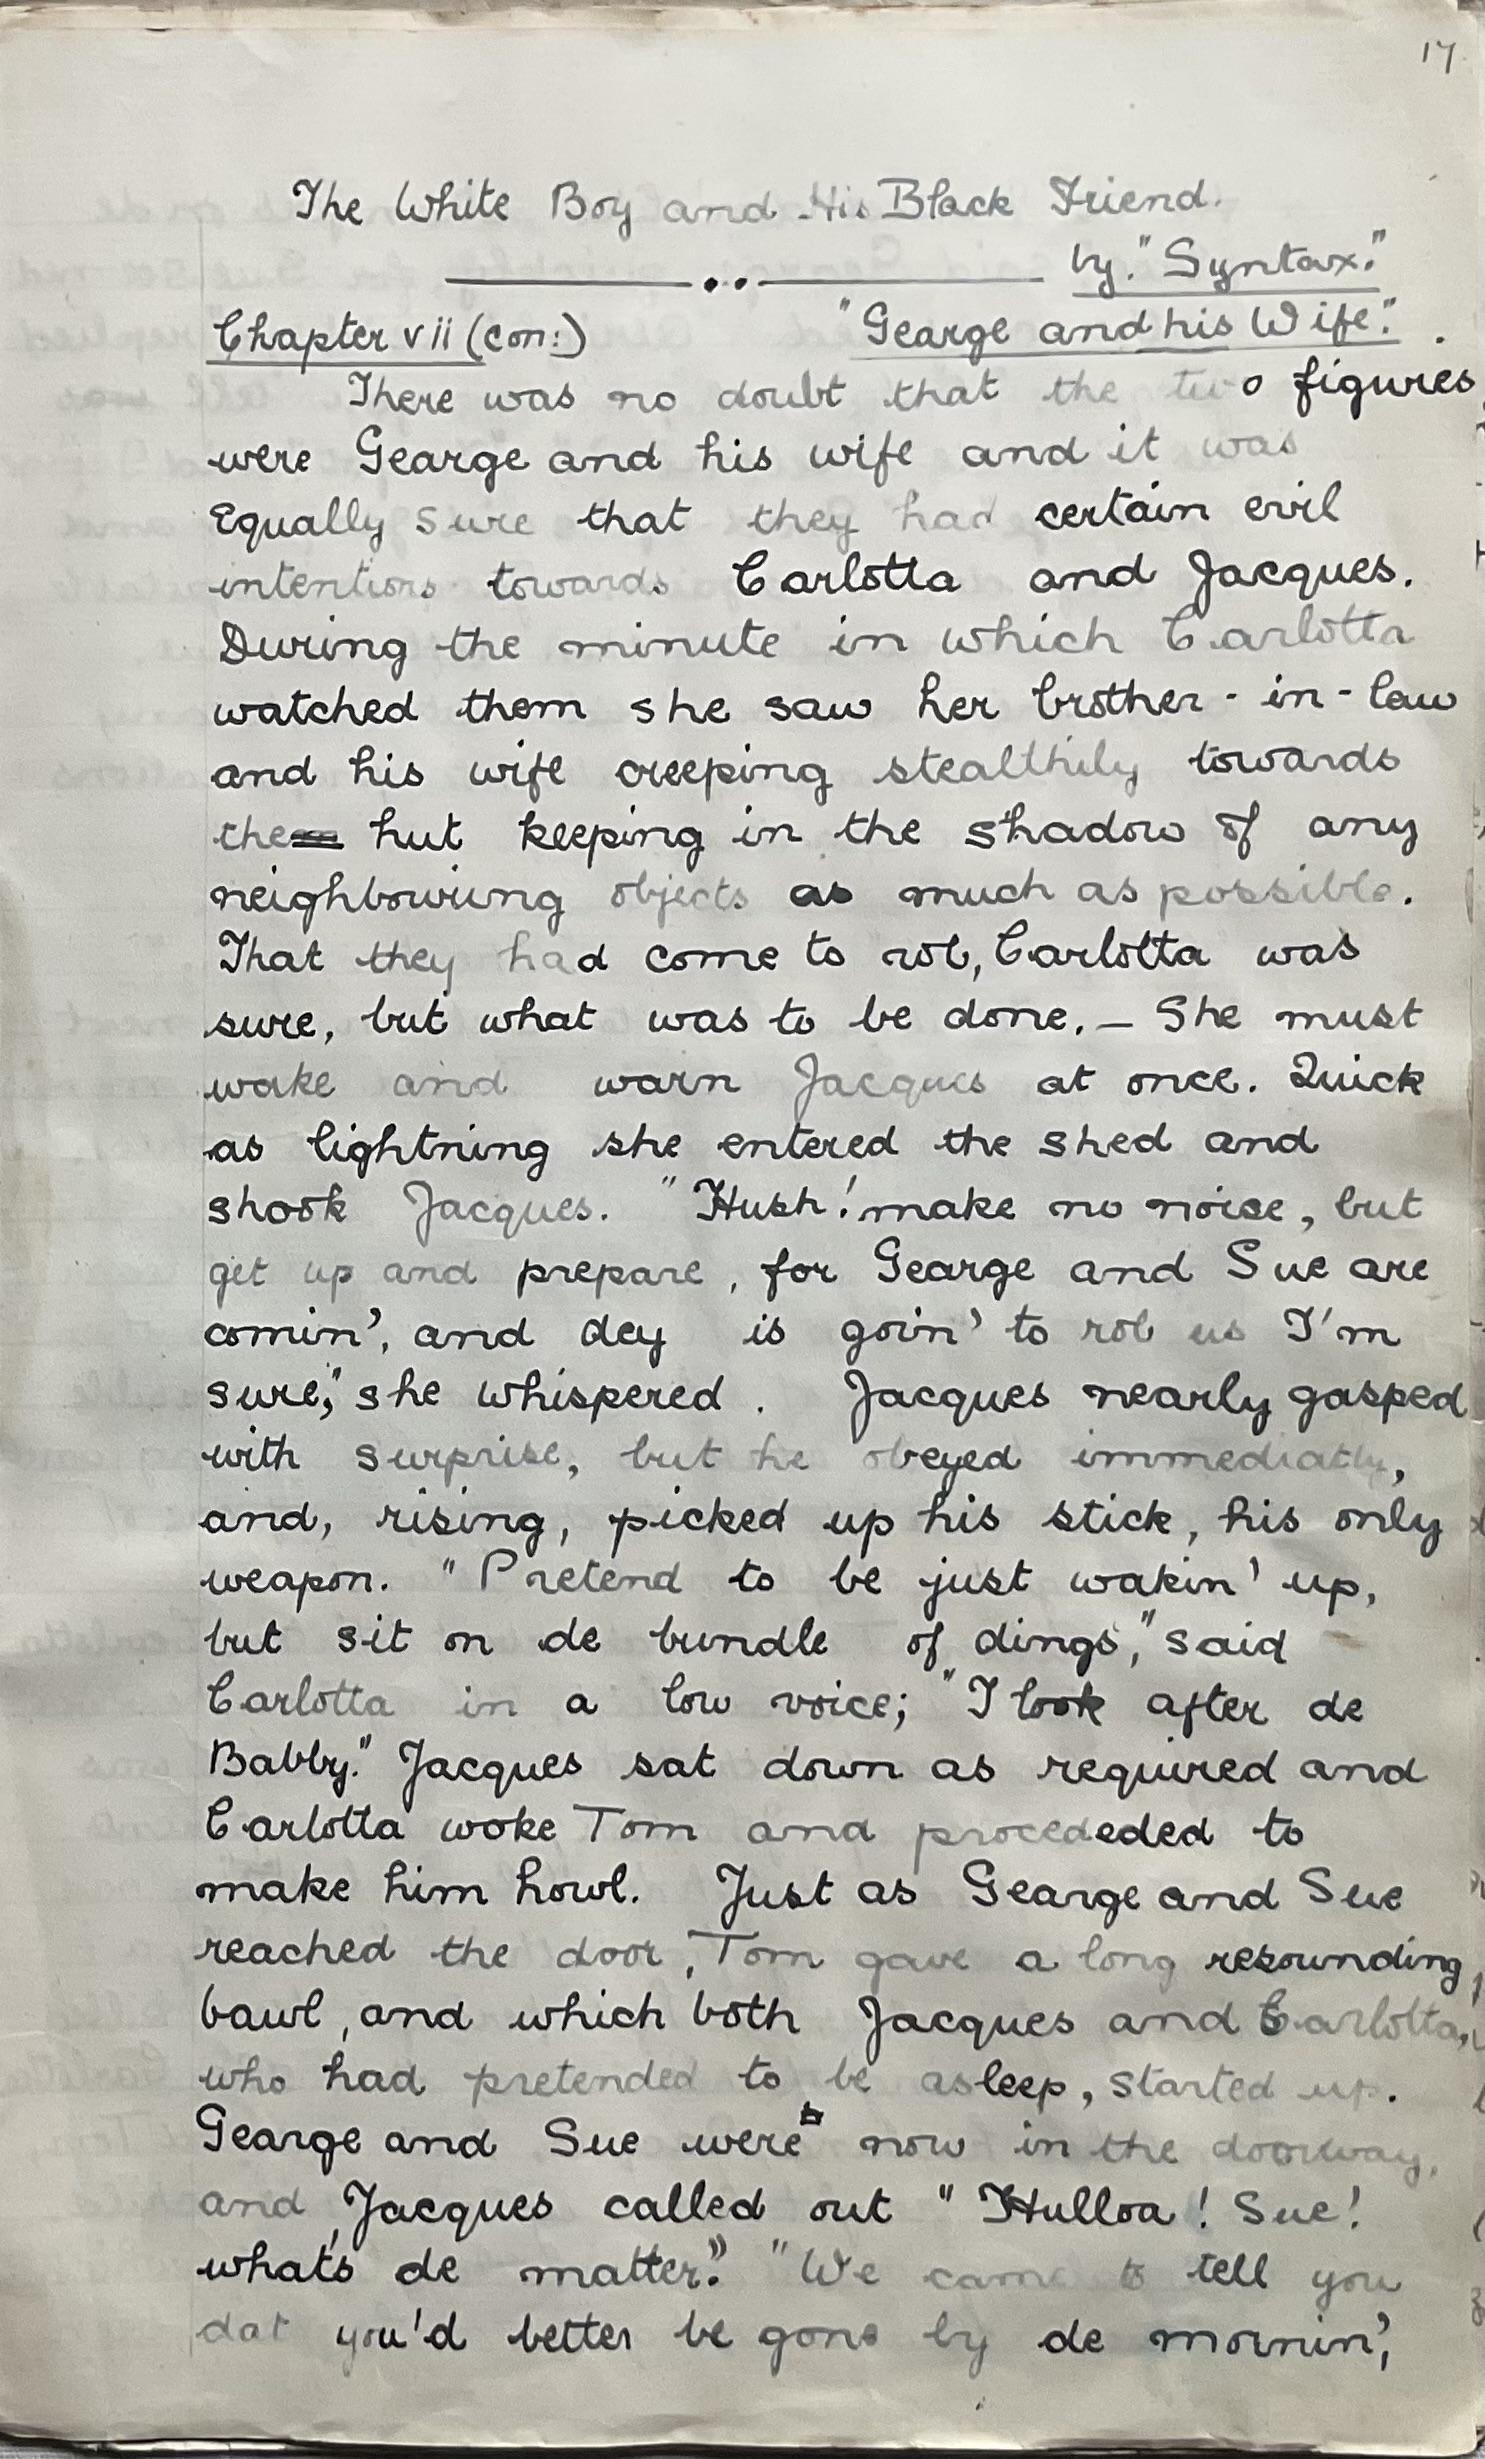 17
The White Boy and His Black Friend.
by. "Syntax."
Chapter vii (con:) "Gearge and his Wife".
There was no doubt that the two figures
were Gearge and his wife and it was
Equally sure that they had certain evil
intentions towards Carlotta and Jacques.
During the minute in which Carlotta
watched them she saw her brother-in-law
and his wife creeping stealthily towards
the hut keeping in the shadow of any
neighbouring objects as much as possible.
That they had come to rob, Carlotta was
sure, but what was to be done. — She must
wake and warn Jacques at once. Quick
as lightning she entered the shed and
shook Jacques. "Hush! make no noise, but
get up and prepare, for Gearge and Sue are
comin', and dey is goin' to rob us I'm
sure," she whispered. Jacques nearly gasped
with surprise, but he obeyed immediatly,
and, rising, picked up his stick, his only
weapon. "Pretend to be just wakin' up,
but sit on de bundle of dings," said
Carlotta in a low voice; "I look after de
Babby." Jacques sat down as required and
Carlotta woke Tom and procededed to
make him howl. Just as Gearge and Sue
reached the door, Tom gave a long resounding
bawl, and which both Jacques and Carlotta,
who had pretended to be asleep, started up.
Gearge and Sue were now in the doorway,
and, Jacques called out "Hulloa! Sue!
what's de matter?" "We came to tell you
dat you'd better be gone by de mornin',